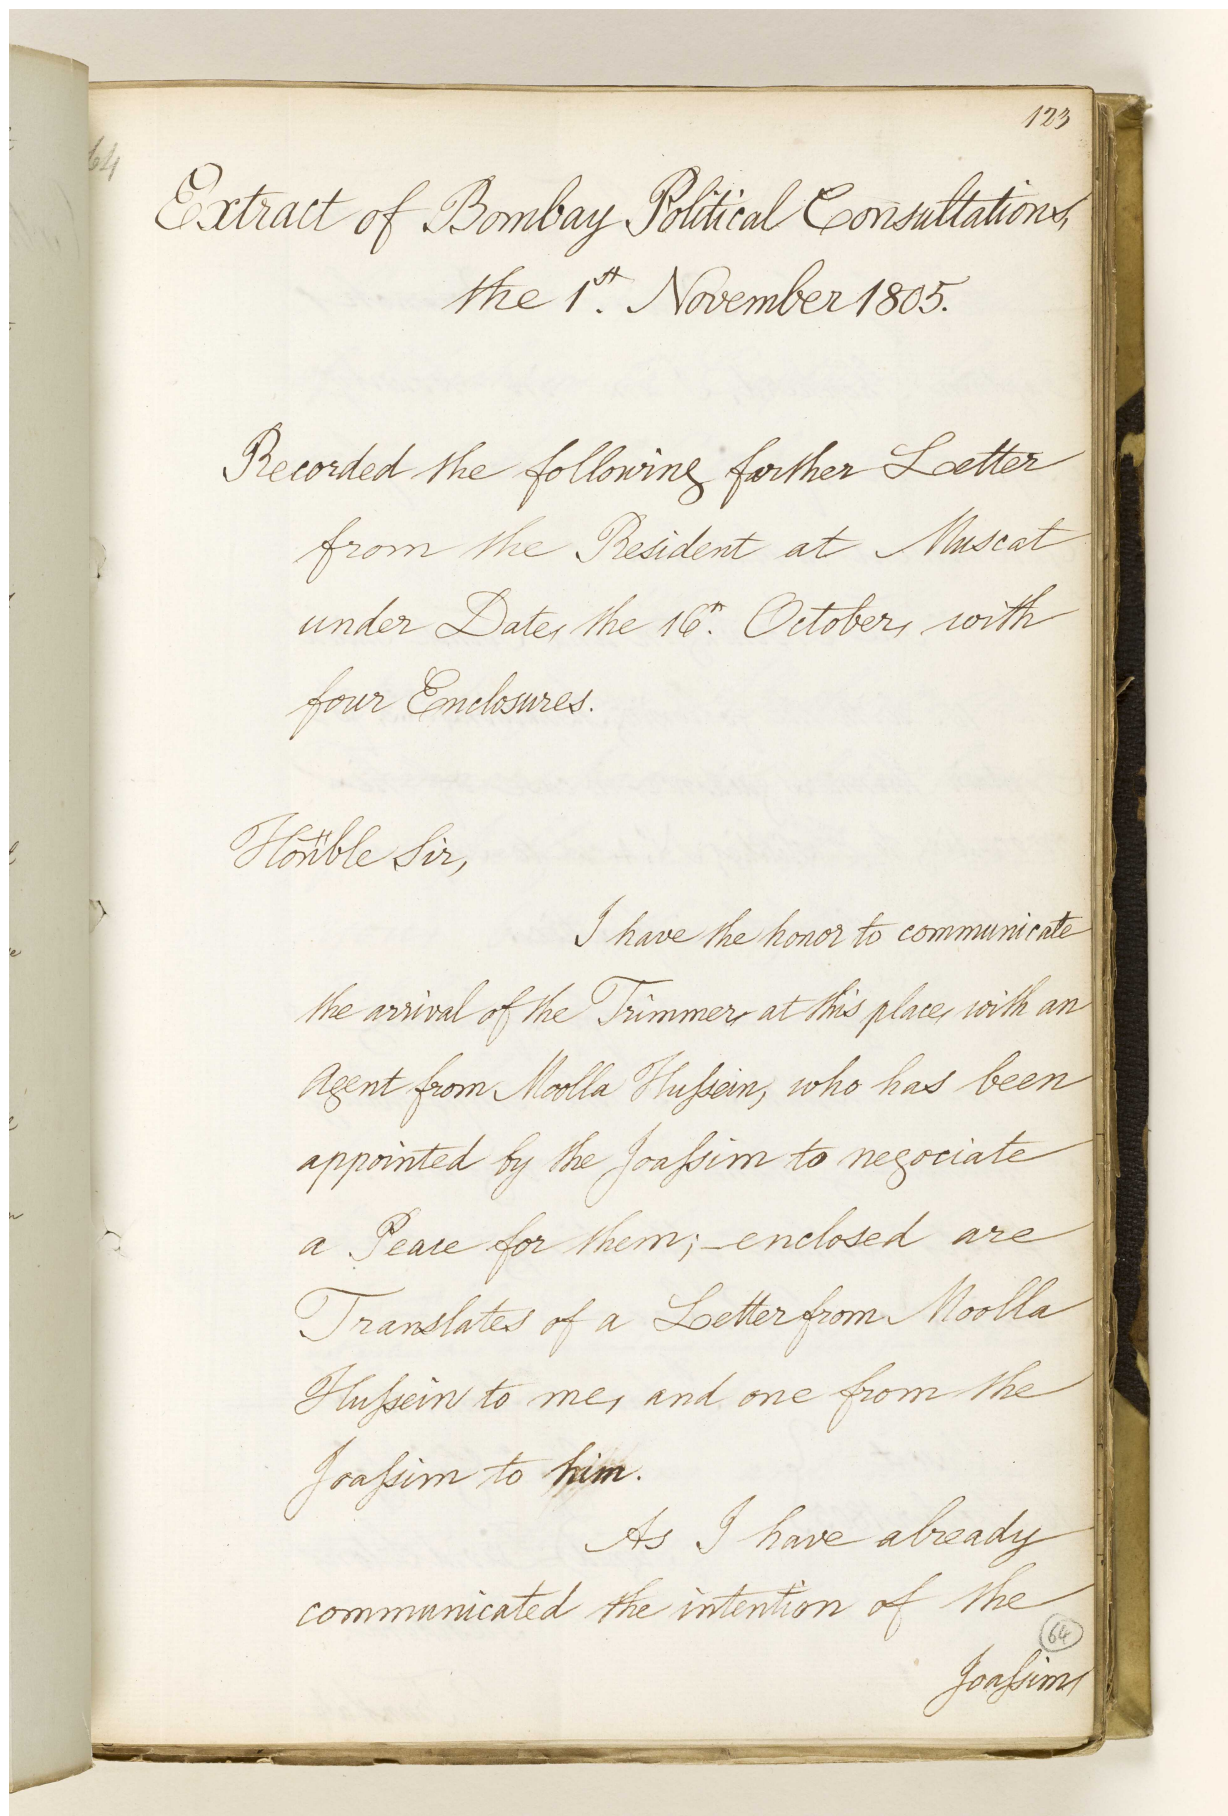 123
64
Extract of Bombay Political Consultations,
the 1st. November 1805.
Recorded the following further Letter
from the Resident at Muscat
under Date, the 16th. October, with
four Enclosures.
Honble Sir,
I have the honor to communicate
the arrival of the Trimmer, at this place, with an
Agent from Moolla Hussein, who has been
appointed by the Joassim to negociate
a Peace for them; – enclosed are
Translates of a Letter from Moolla
Hussein to me, and one from the
Joassim to him.
As I have already
communicated the intention of the
64
Joassim,